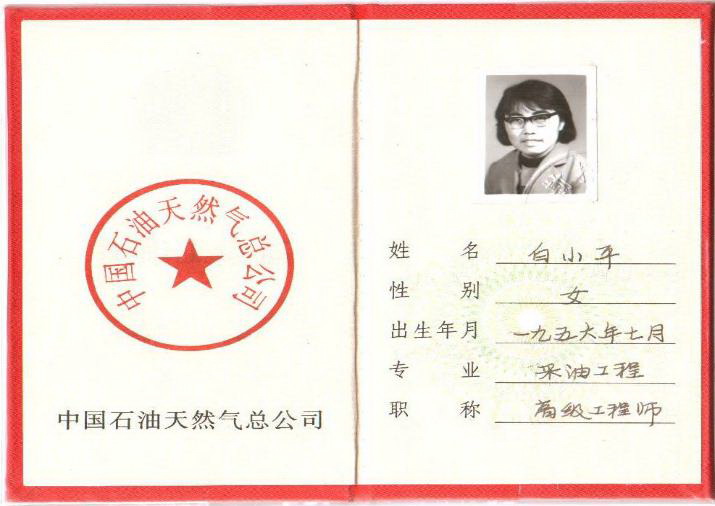 中国石油天然气总公司
中国石油天然气总公司
姓名 白小平
性别 女
出生年月 一九五六年七月
专业 采油工程
职称 高级工程师